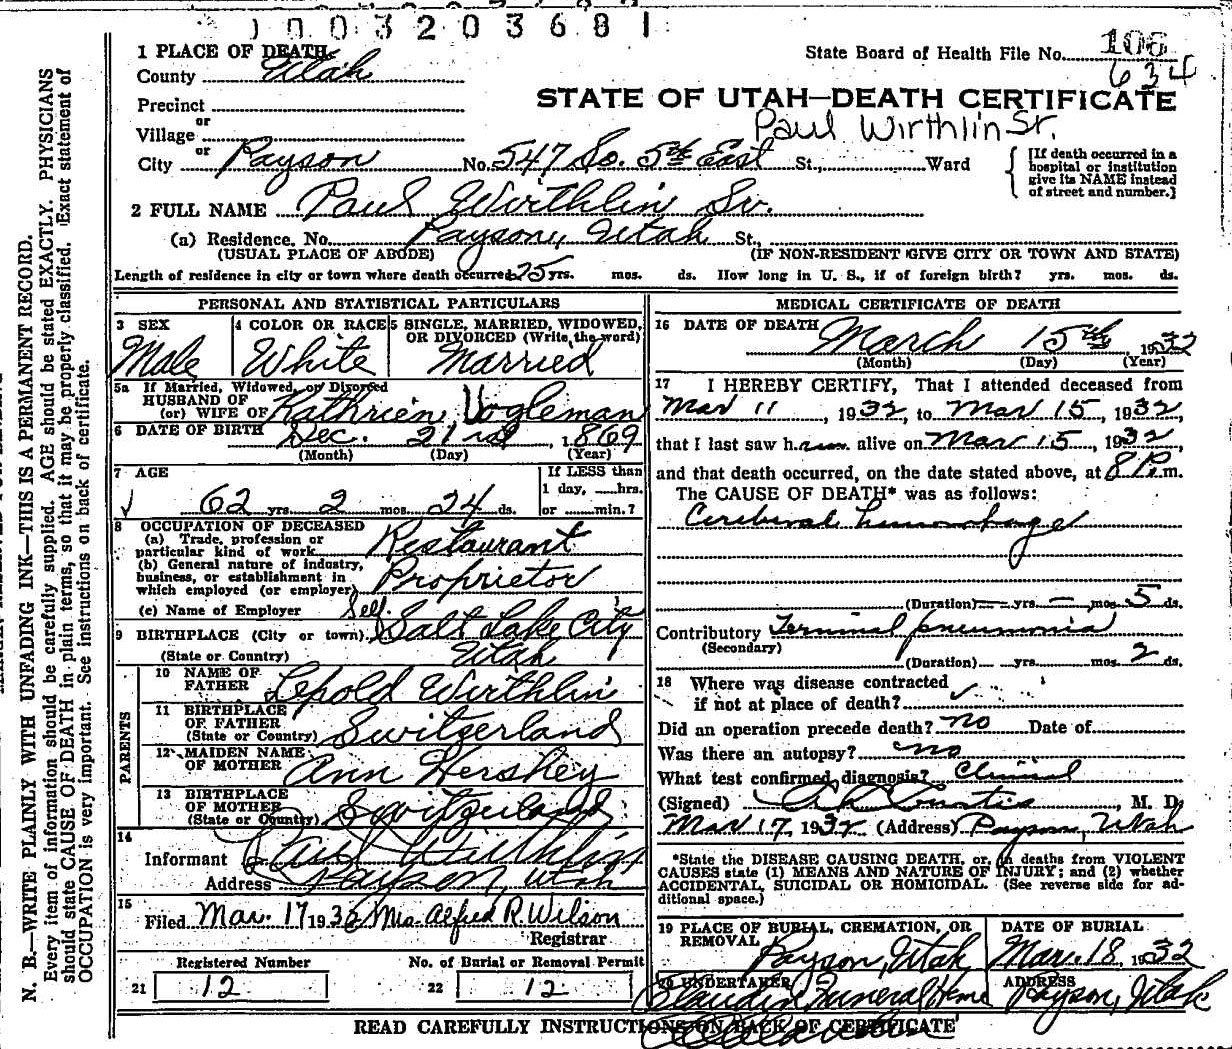 1003203681
1 PLACE OF DEATH
State Board of Health File No. 106
County Utah
634
Precinct
STATE OF UTAH—DEATH CERTIFICATE
or
Paul Wirthlin Sr.
Village
or
City Payson No. 547 So. 5th East St., Ward
[If death occurred in a hospital or institution give its NAME instead of street and number.]
2 FULL NAME Paul Wirthlin Sr.
(a) Residence, No. Payson, Utah St.,
(USUAL PLACE OF ABODE) (IF NON-RESIDENT GIVE CITY OR TOWN AND STATE)
Length of residence in city or town where death occurred 25 yrs. mos. ds. How long in U. S., if of foreign birth? yrs. mos. ds.
PERSONAL AND STATISTICAL PARTICULARS
3 SEX Male
4 COLOR OR RACE White
5 SINGLE, MARRIED, WIDOWED, OR DIVORCED (Write the word) Married
5a If Married, Widowed, or Divorced
HUSBAND OF
(or) WIFE OF Kathrien Vogleman
6 DATE OF BIRTH Dec. 21 , 1869
(Month) (Day) (Year)
7 AGE
62 yrs. 2 mos. 24 ds.
If LESS than
1 day, hrs.
or min.?
8 OCCUPATION OF DECEASED
(a) Trade, profession or
particular kind of work Restaurant
(b) General nature of industry,
business, or establishment in
which employed (or employer) Proprietor
(c) Name of Employer Self.
9 BIRTHPLACE (City or town) Salt Lake City
(State or Country) Utah
PARENTS
10 NAME OF
FATHER Lepold Wirthlin
11 BIRTHPLACE
OF FATHER
(State or Country) Switzerland
12 MAIDEN NAME
OF MOTHER Ann Hershey
13 BIRTHPLACE
OF MOTHER
(State or Country) Switzerland
14
Informant Paul Wirthlin
Address Payson, Utah
15
Filed Mar. 17 1932 Mrs. Alfred R. Wilson
Registrar
Registered Number No. of Burial or Removal Permit
21 12 22 12
MEDICAL CERTIFICATE OF DEATH
16 DATE OF DEATH March 15th, 1932
(Month) (Day) (Year)
17 I HEREBY CERTIFY, That I attended deceased from
Mar 11, 1932, to Mar 15, 1932,
that I last saw him alive on Mar 15, 1932
and that death occurred, on the date stated above, at 8 P.m.
The CAUSE OF DEATH* was as follows:
Cerebral hemorrhage
(Duration) — yrs. — mos. 5 ds.
Contributory Terminal pneumonia
(Secondary)
(Duration) yrs. mos. 2 ds.
18 Where was disease contracted
if not at place of death?
Did an operation precede death? no Date of
Was there an autopsy? no
What test confirmed diagnosis? Clinical
(Signed) Curtis, M. D.
Mar 17, 1932 (Address) Payson, Utah
*State the DISEASE CAUSING DEATH, or, in deaths from VIOLENT
CAUSES state (1) MEANS AND NATURE OF INJURY; and (2) whether
ACCIDENTAL, SUICIDAL OR HOMICIDAL. (See reverse side for ad-
ditional space.)
19 PLACE OF BURIAL, CREMATION, OR
REMOVAL Payson, Utah
DATE OF BURIAL
Mar. 18, 1932
20 UNDERTAKER
Claudin Funeral Home
ADDRESS
Payson, Utah
READ CAREFULLY INSTRUCTIONS ON BACK OF CERTIFICATE
N. B.—WRITE PLAINLY WITH UNFADING INK—THIS IS A PERMANENT RECORD.
Every item of information should be carefully supplied. AGE should be stated EXACTLY. PHYSICIANS
should state CAUSE OF DEATH in plain terms, so that it may be properly classified. Exact statement of
OCCUPATION is very important. See instructions on back of certificate.